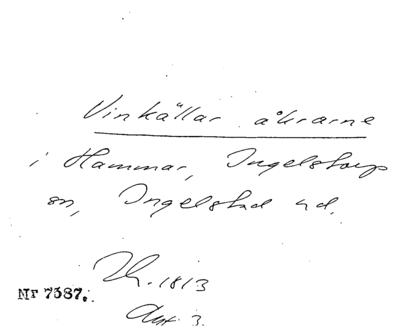 Vinkällar åkrarne
i Hammar, Ingelstorps
sn, Ingelstad hd.
1813
Nr 7587.
Akt 3.